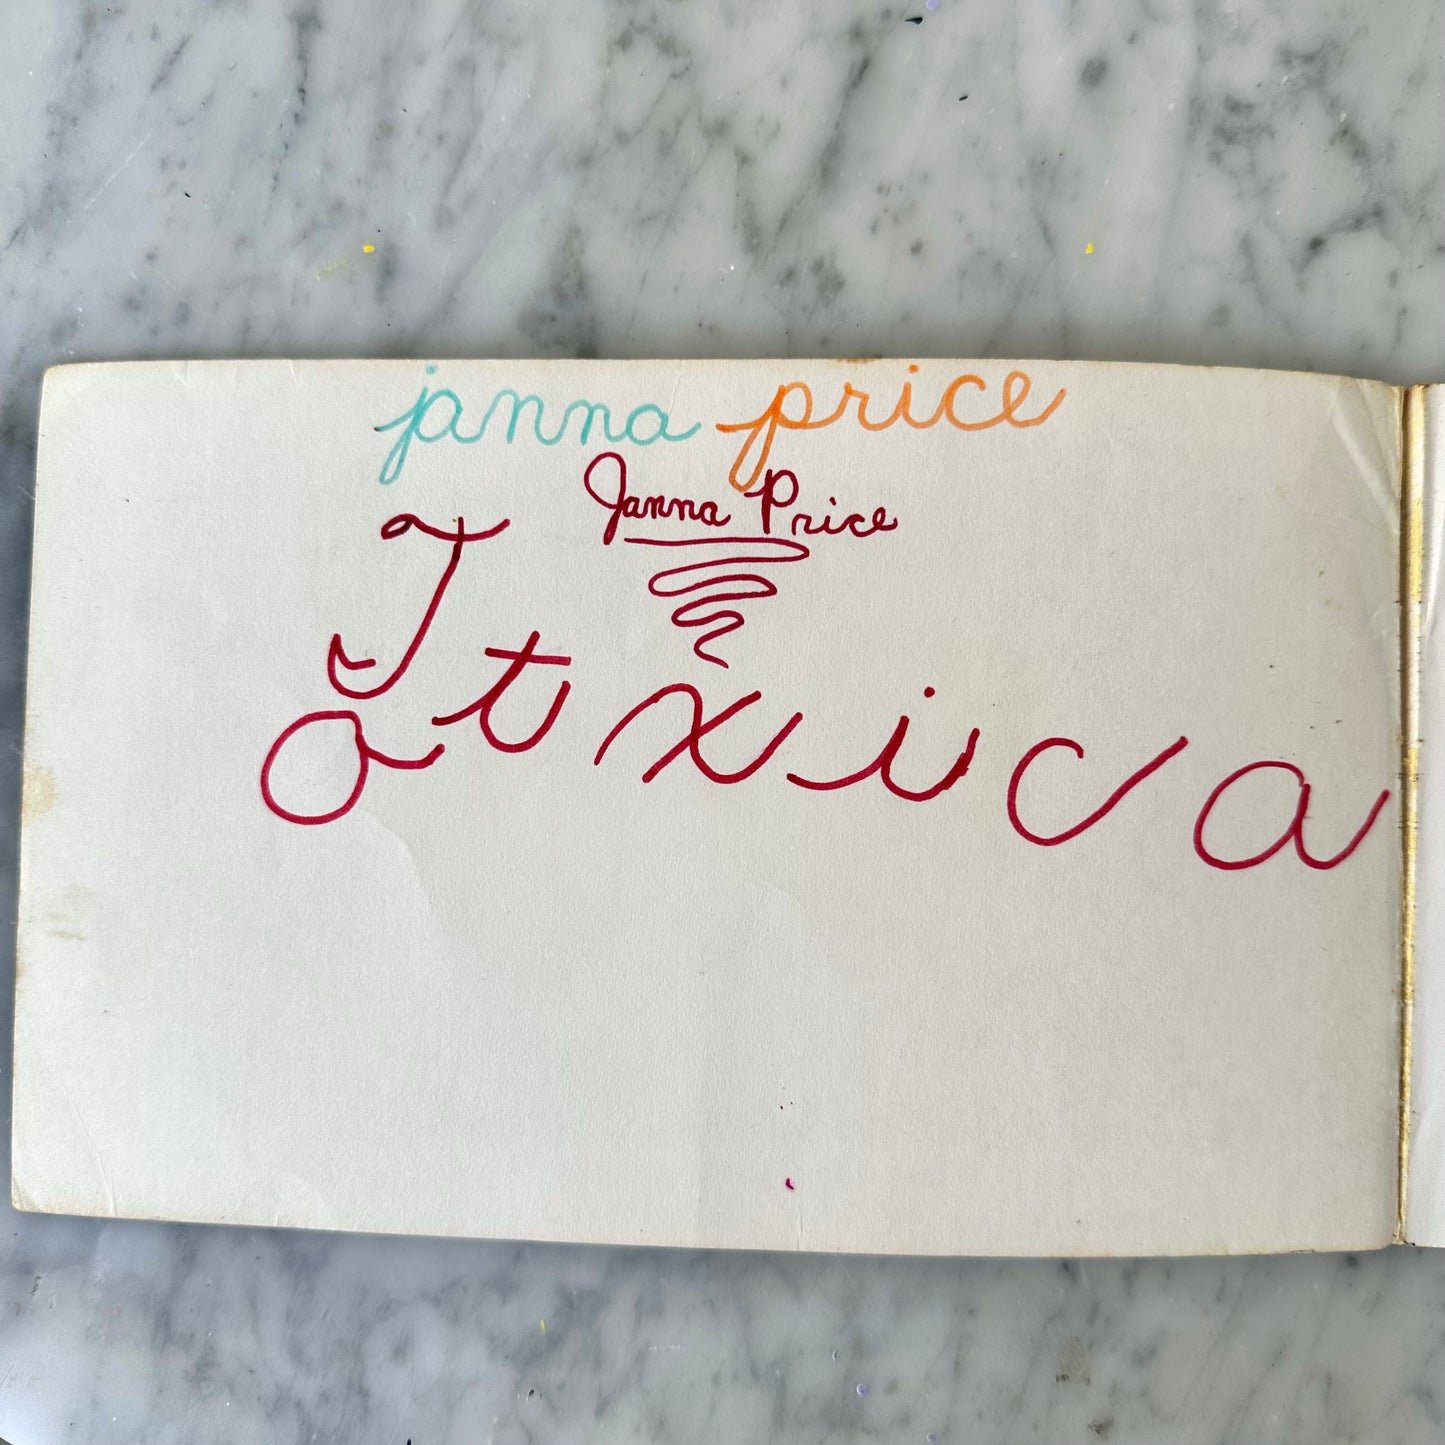 janna price
Janna Price
T
atxica